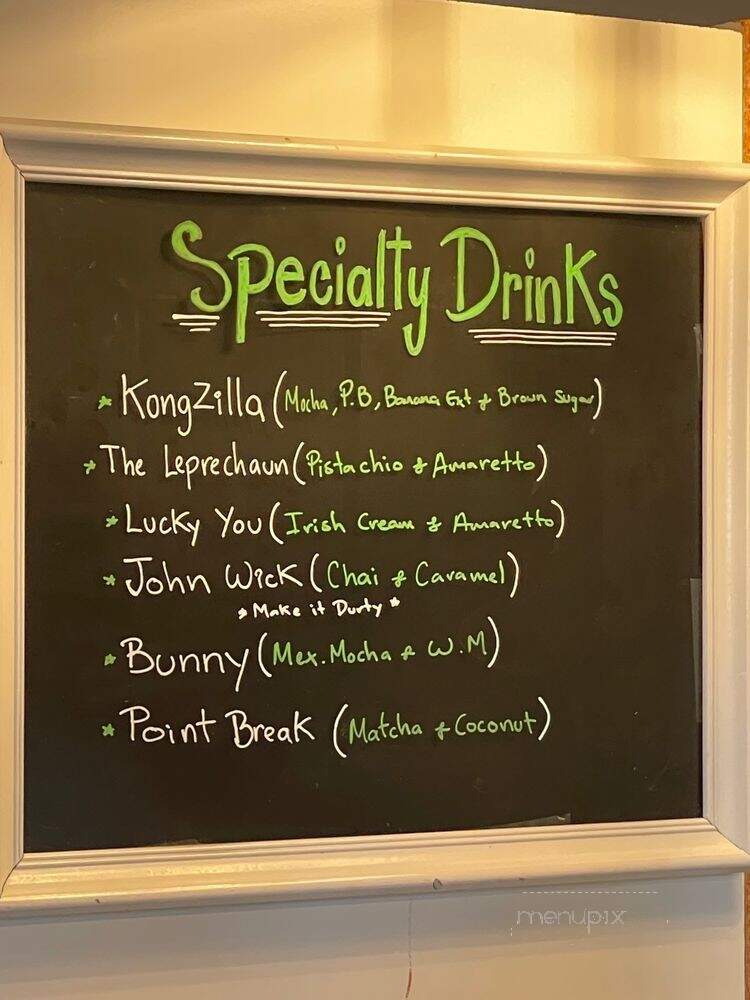 Specialty Drinks
* KongZilla (Mocha, P.B, Banana Ext & Brown Sugar)
* The Leprechaun (Pistachio & Amaretto)
* Lucky You (Irish Cream & Amaretto)
* John Wick (Chai & Caramel)
* Make it Durty *
* Bunny (Mex. Mocha & W.M)
* Point Break (Matcha & Coconut)
menupix